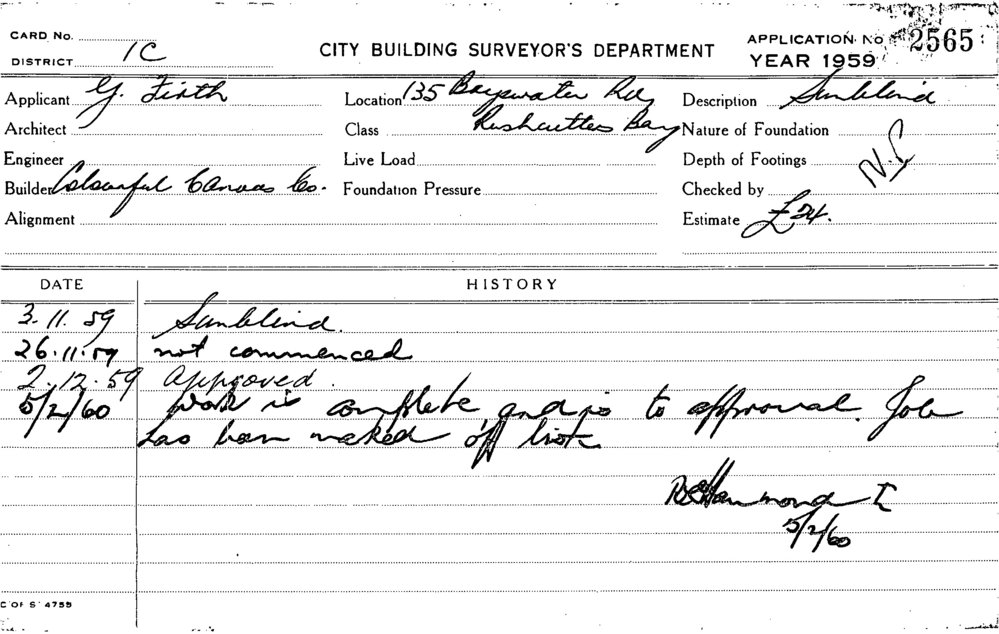 CARD No.
DISTRICT 1C
CITY BUILDING SURVEYOR'S DEPARTMENT
APPLICATION No 2565
YEAR 1959
Applicant G. Firth
Location 135 Bayswater Rd,
Description Sunblind
Architect
Class Rushcutters Bay
Nature of Foundation
Engineer
Live Load
Depth of Footings
Builder Colourful Canvas Co.
Foundation Pressure
Checked by
Alignment
Estimate £24.
DATE HISTORY
3.11.59 Sunblind.
26.11.59 not commenced
2.12.59 Approved.
5/2/60 Work is complete and is to approval. Job
has been marked off list
Hammond I
5/2/60
C OF S 4755